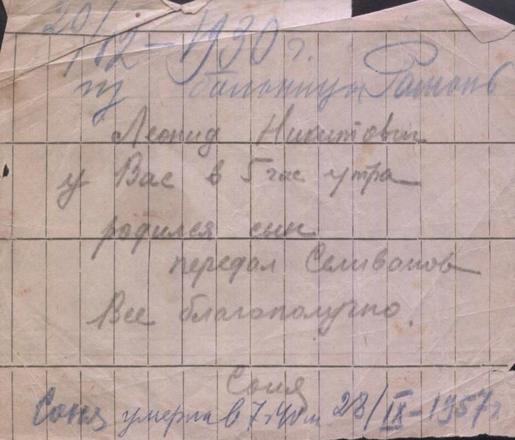 20/
XII-1930 г.
из больницы Рамонь
Леонид Никитович
у Вас в 5 час утра
родился сын
передал Селиванов
Все благополучно.
Соня
Соня умерла в 7 ч 40 м 28/IX-1957 г